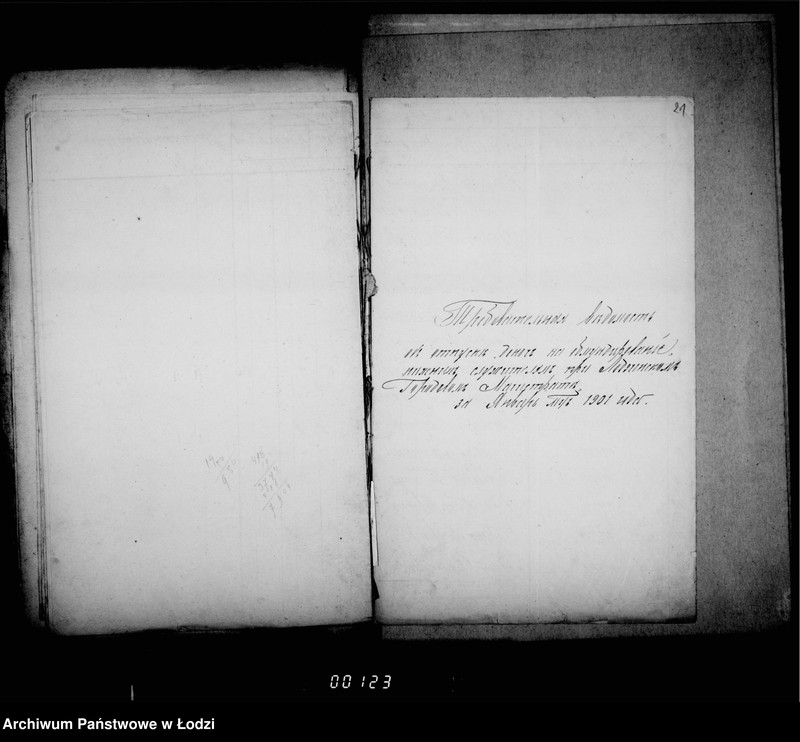 21
Требовательная ведомость
объ отпускѣ денегъ на обмундированіе
нижнимъ служителямъ при Лодзинскомъ
Городовомъ Магистратѣ
за Январь мцъ 1901 года.
00123
Archiwum Państwowe w Łodzi